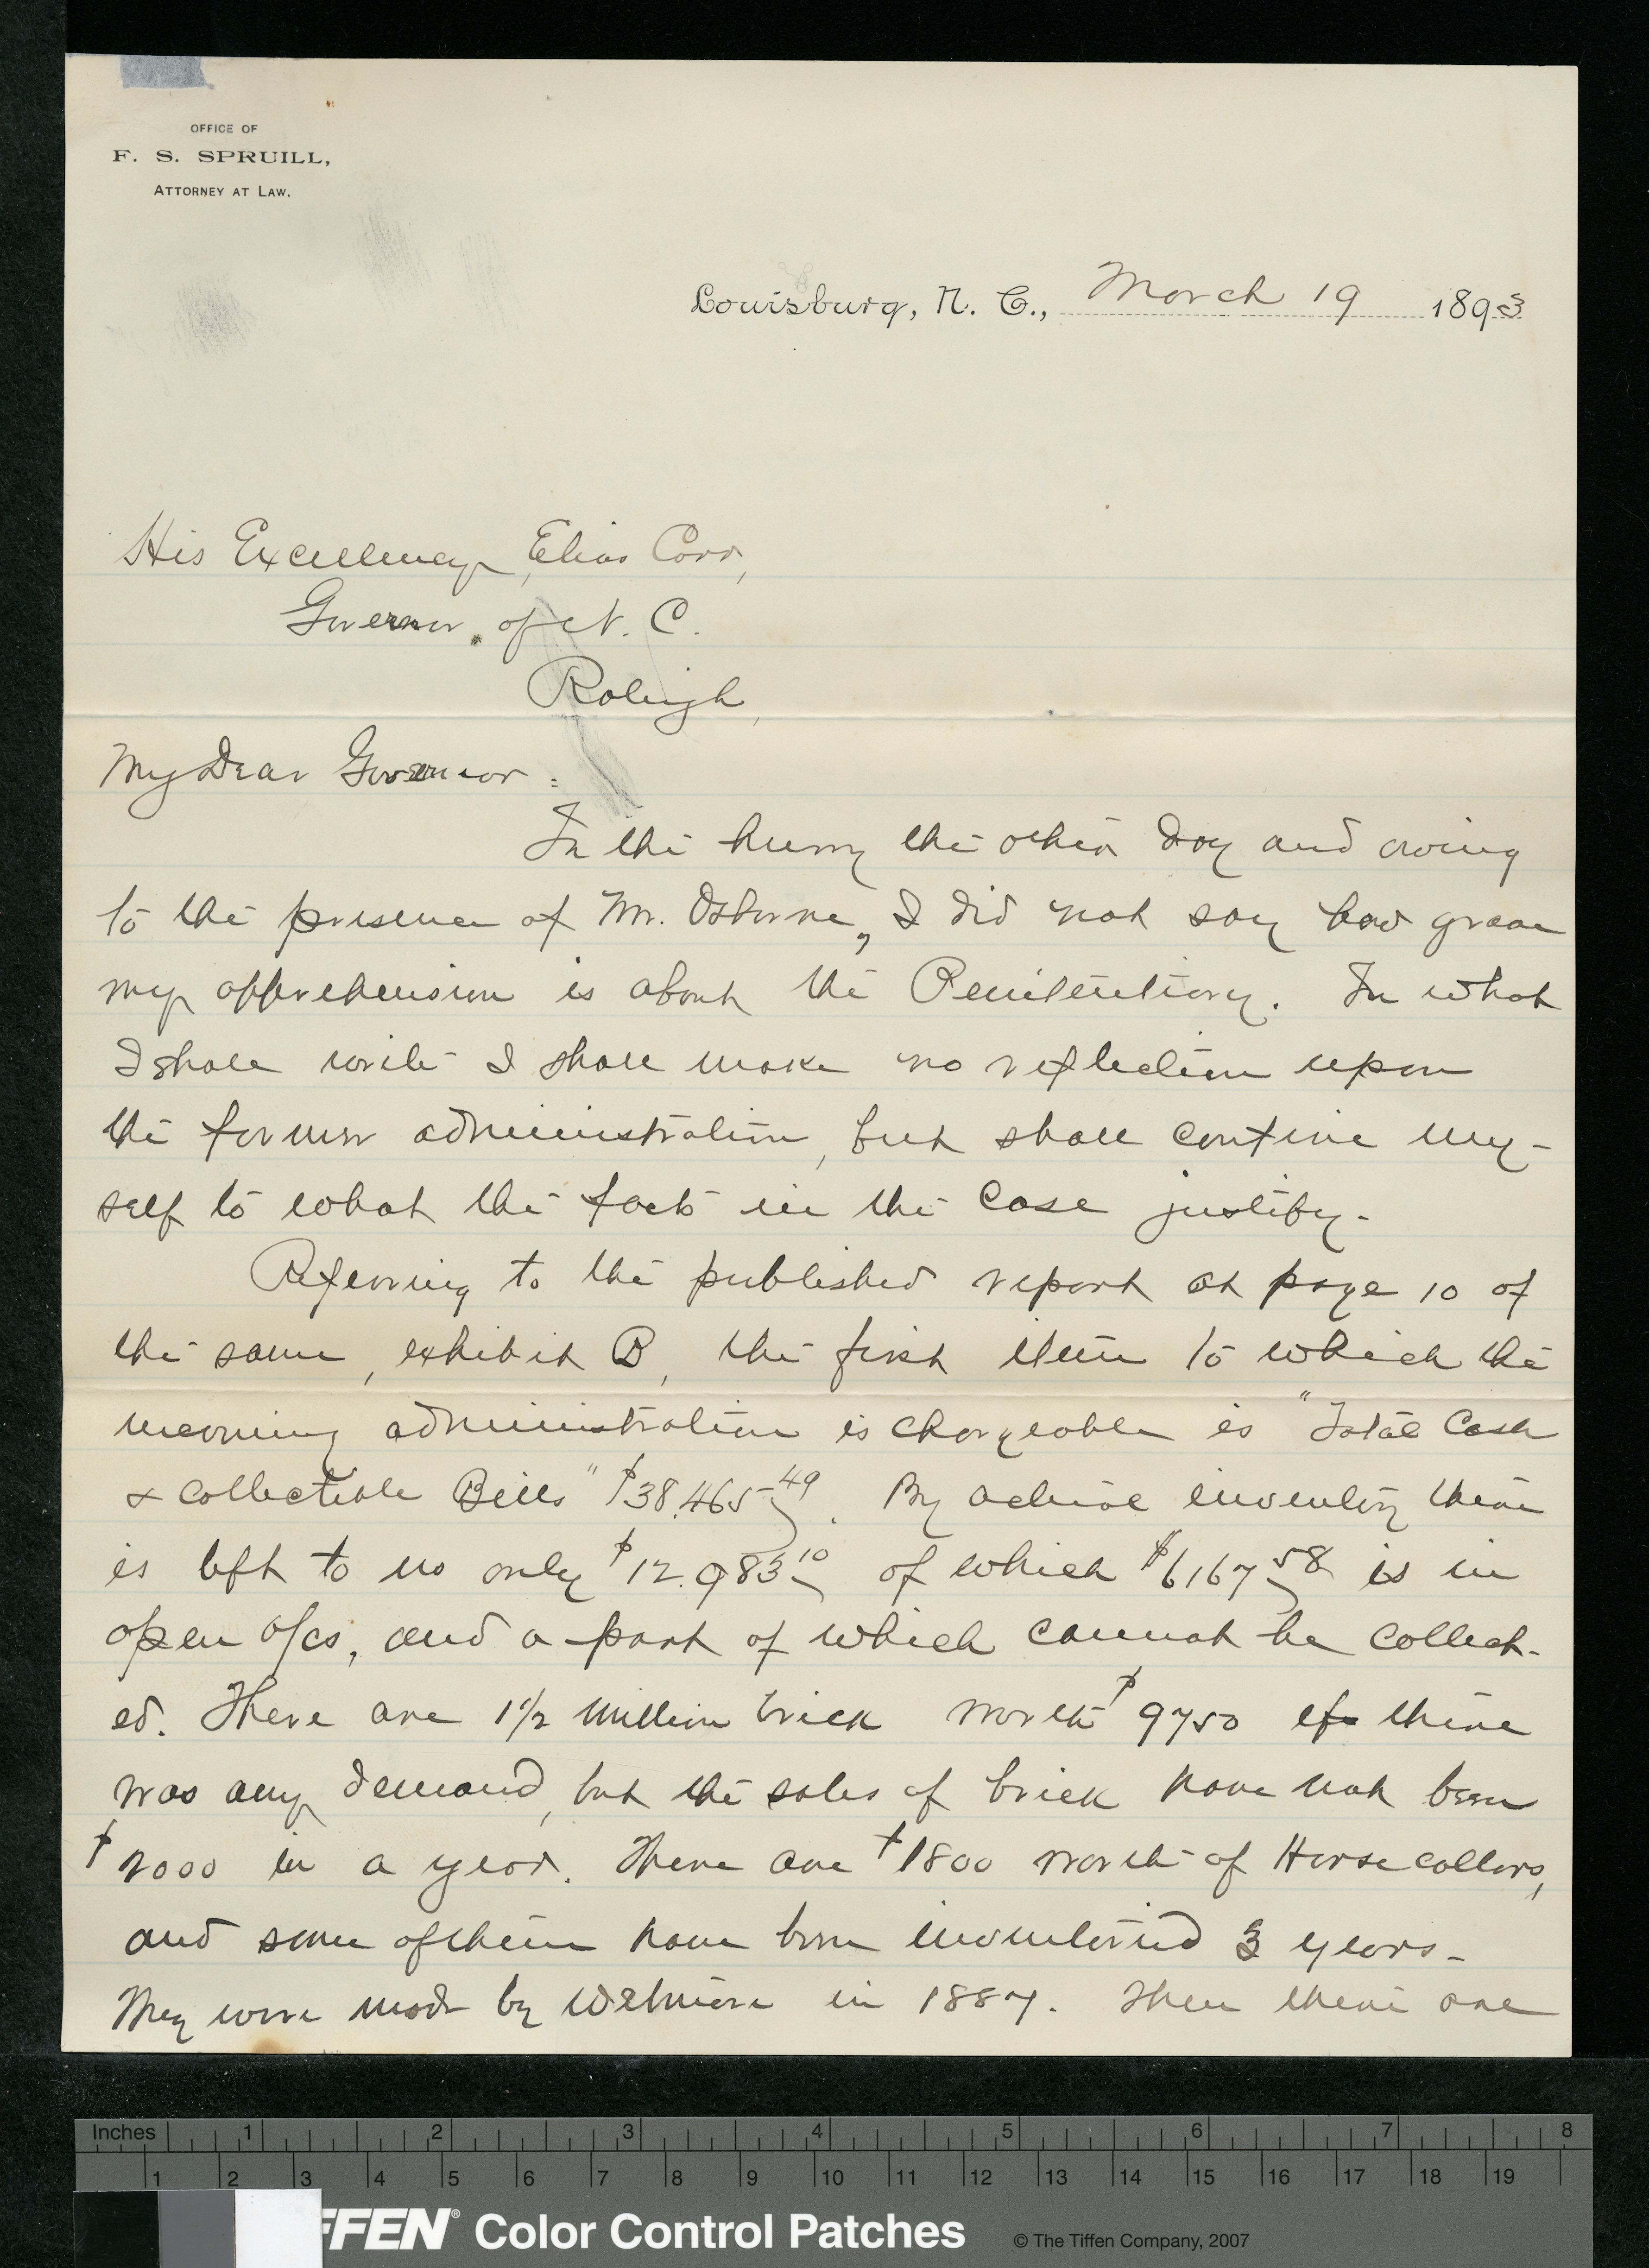 OFFICE OF
F. S. SPRUILL,
ATTORNEY AT LAW.
Louisburg, N. C., March 19 1893
His Excellency, Elias Carr,
Governor of N. C.
Raleigh,
My Dear Governor:
In the hurry the other day and owing
to the presence of Mr. Osborne, I did not say how grave
my apprehension is about the Penitentiary. In what
I shall write I shall make no reflection upon
the former administration, but shall confine my-
self to what the facts in the case justify.
Referring to the published report at page 10 of
the same, exhibit B, the first item to which the
incoming administration is chargeable is "Total Cash
& Collectible Bills" $38,465 49. By actual inventory there
is left to us only $12,983 10 of which $6167 58 is in
open a/cs, and a part of which cannot be collect-
ed. There are 1 1/2 million brick worth $9750 if there
was any demand, but the sales of brick have not been
$2000 in a year. There are $1800 worth of Horse collars,
and some of them have been inventoried 3 years-
They were made by Wetmore in 1887. Then there are
Inches 1 2 3 4 5 6 7 8
1 2 3 4 5 6 7 8 9 10 11 12 13 14 15 16 17 18 19
FFEN® Color Control Patches © The Tiffen Company, 2007